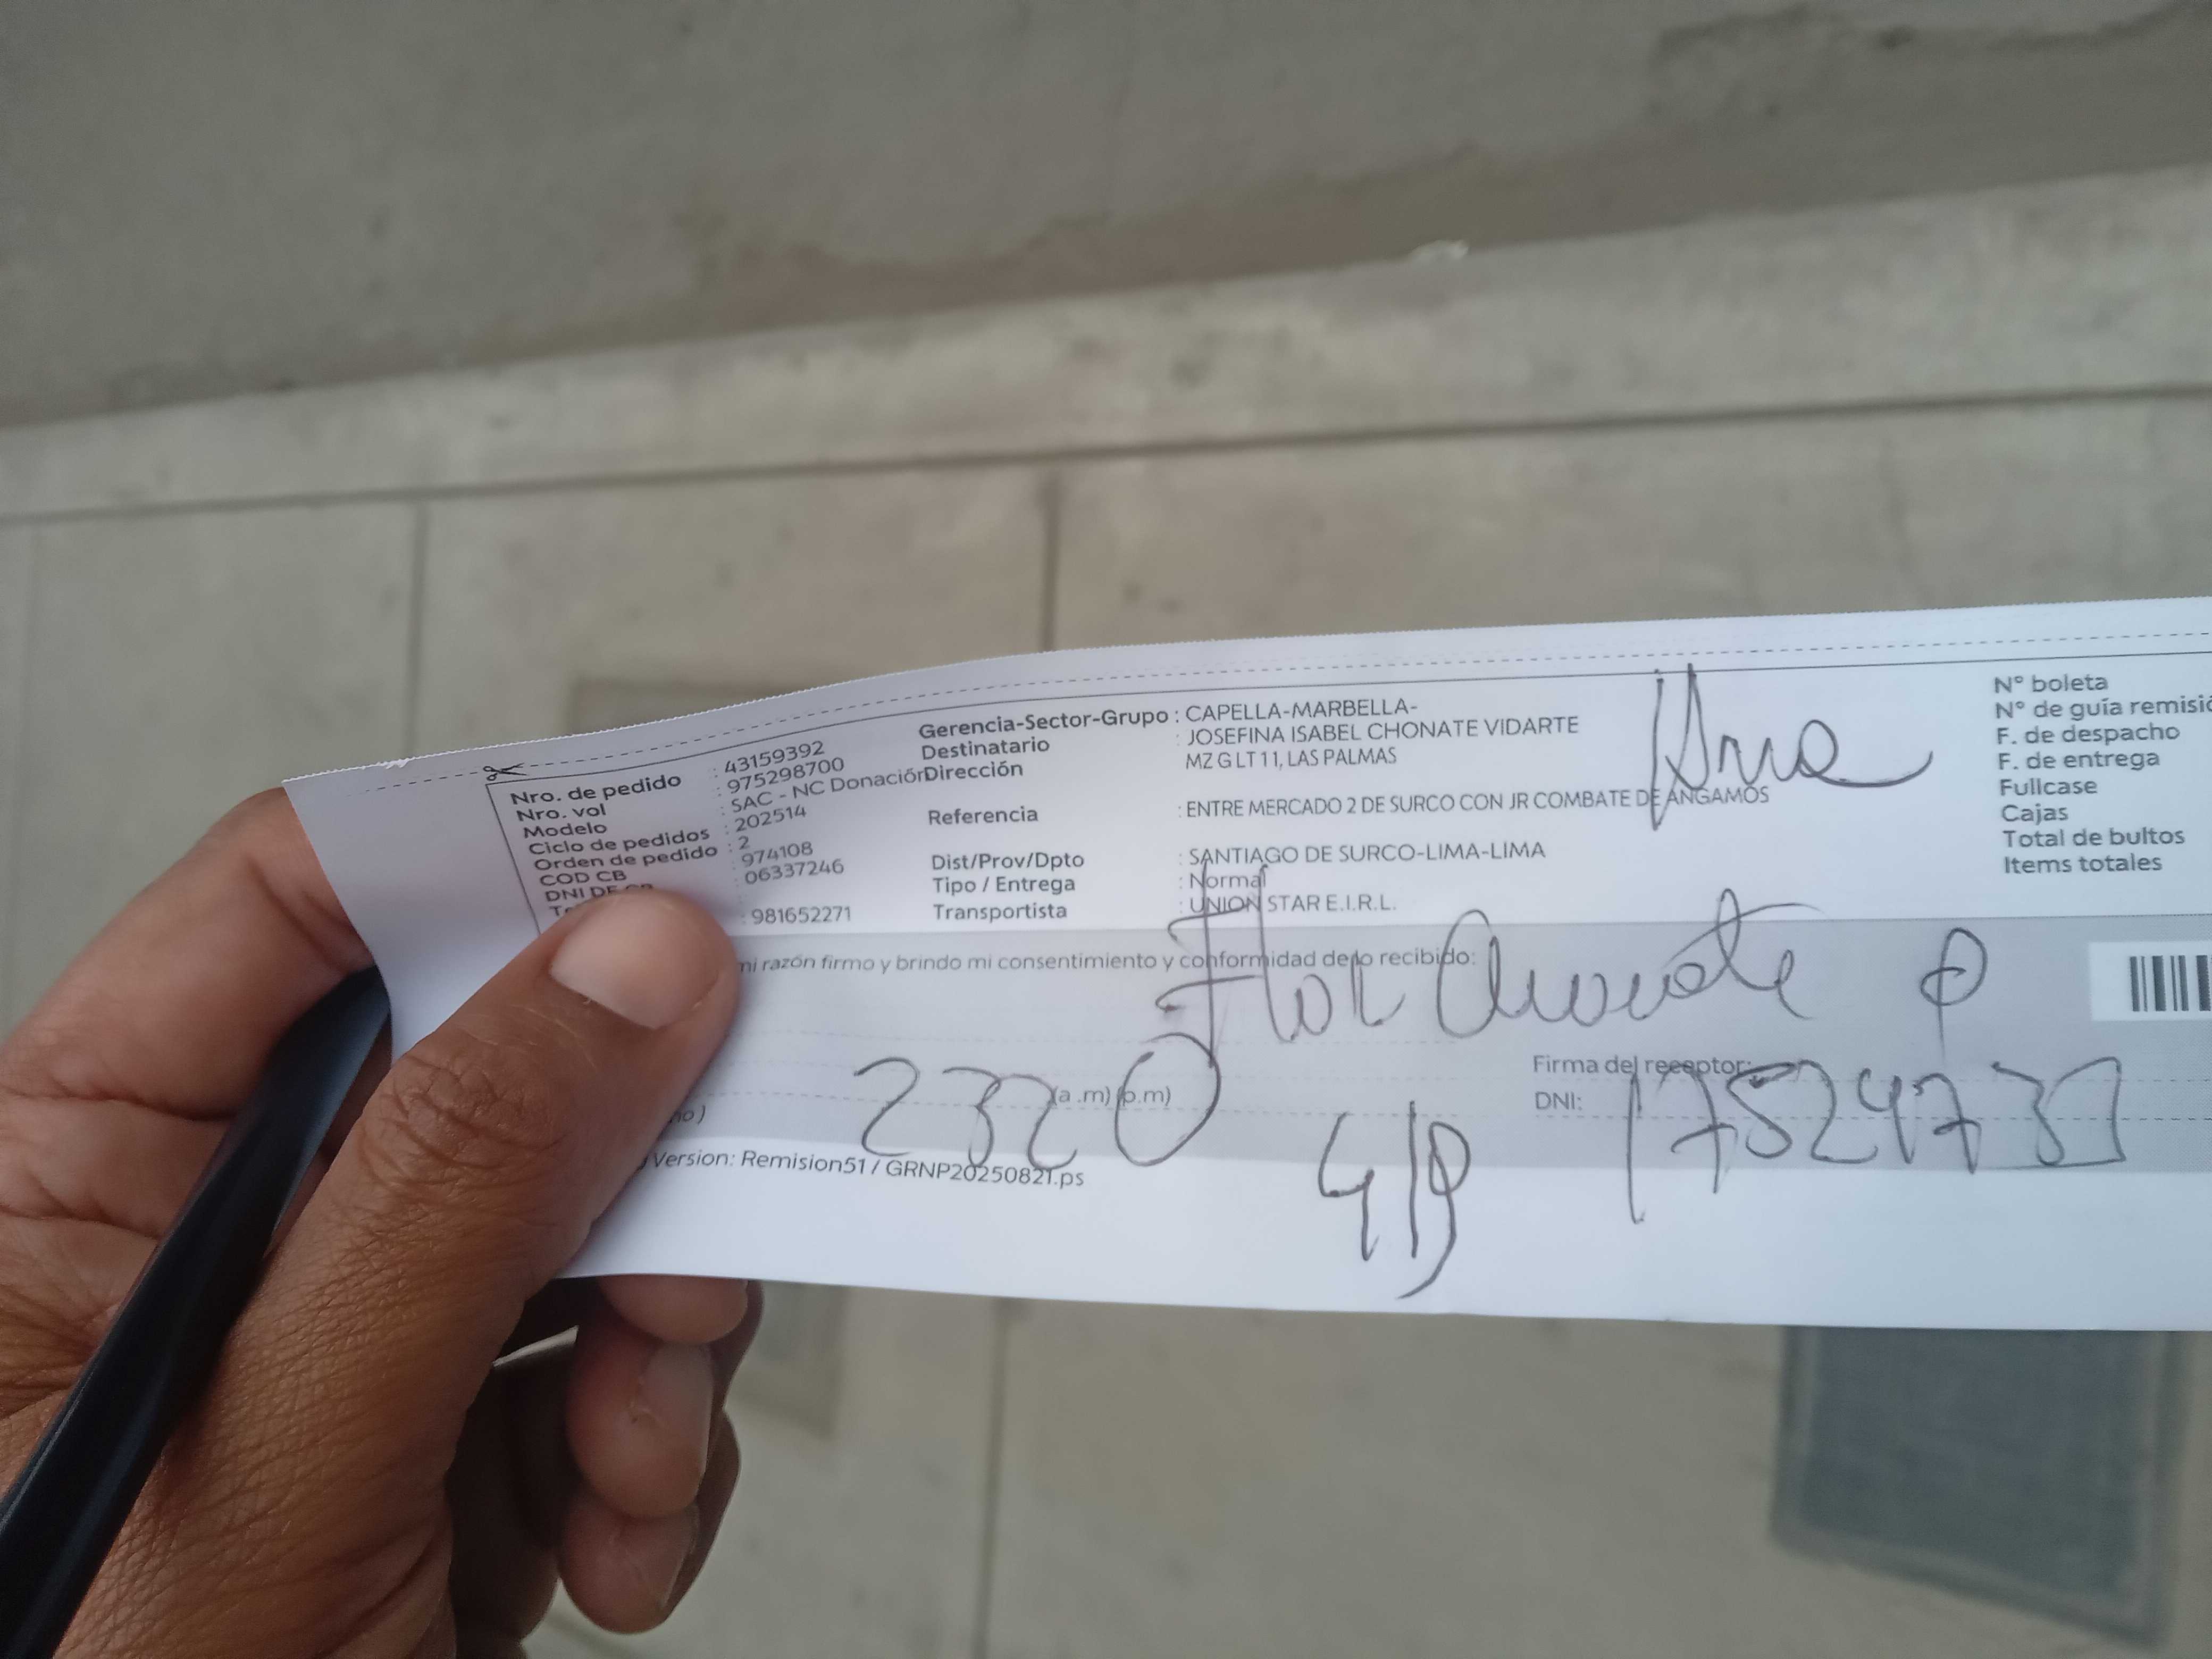 Nro. de pedido : 43159392
Nro. vol : 975298700
Modelo : SAC - NC Donación
Ciclo de pedidos : 202514
Orden de pedido : 2
COD CB : 974108
DNI DE CB : 06337246
: 981652271
Gerencia-Sector-Grupo : CAPELLA-MARBELLA-
Destinatario : JOSEFINA ISABEL CHONATE VIDARTE
Dirección MZ G LT 11, LAS PALMAS
Referencia : ENTRE MERCADO 2 DE SURCO CON JR COMBATE DE ANGAMOS
Dist/Prov/Dpto : SANTIAGO DE SURCO-LIMA-LIMA
Tipo / Entrega : Normal
Transportista : UNION STAR E.I.R.L.
N° boleta
N° de guía remisió
F. de despacho
F. de entrega
Fullcase
Cajas
Total de bultos
Items totales
mi razón firmo y brindo mi consentimiento y conformidad de lo recibido:
Flor Chonate
Firma del receptor:
(a.m) (p.m)
DNI:
2320
4/9
Version: Remision51 / GRNP20250821.ps